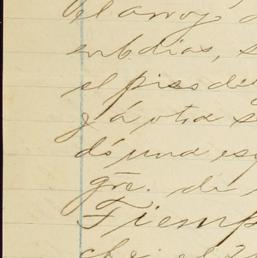 el arroyo
en 6 dias,
el piso de
y á otra s
dó una es
gn. de
Tiemp